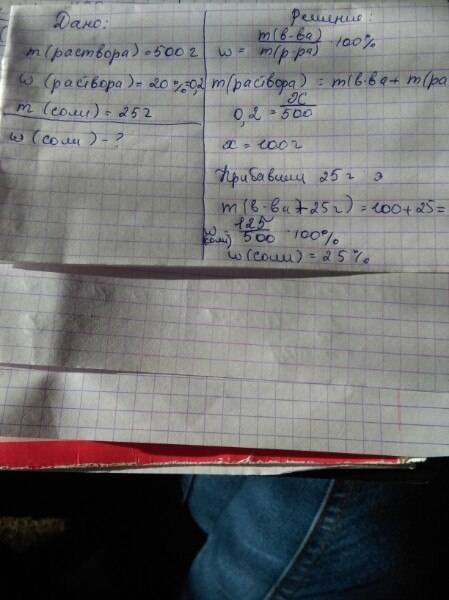 Дано:
m(раствора)=500г
w(раствора)=20%=0,2
m(соли)=25г
w(соли)-?
Решение:
w = m(в-ва)/m(р-ра) · 100%
m(раствора) = m(в-ва + m(ра
0,2 = X/500
x = 100г
Прибавим 25г э
m(в-ва+25г) = 100+25=
w(соли) = 125/500 · 100%
w(соли) = 25%